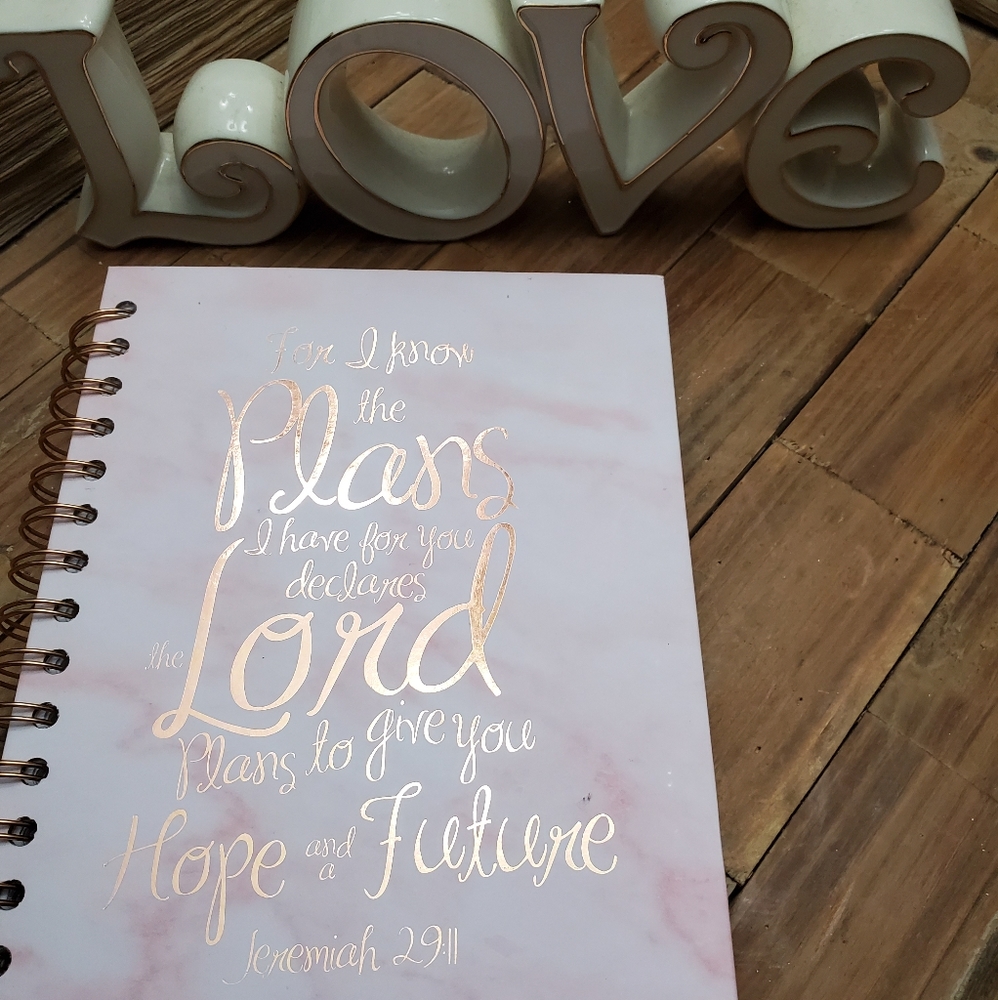 LOVE
For I know
the
Plans
I have for you
declares
the Lord
Plans to give you
Hope and a Future
Jeremiah 29:11